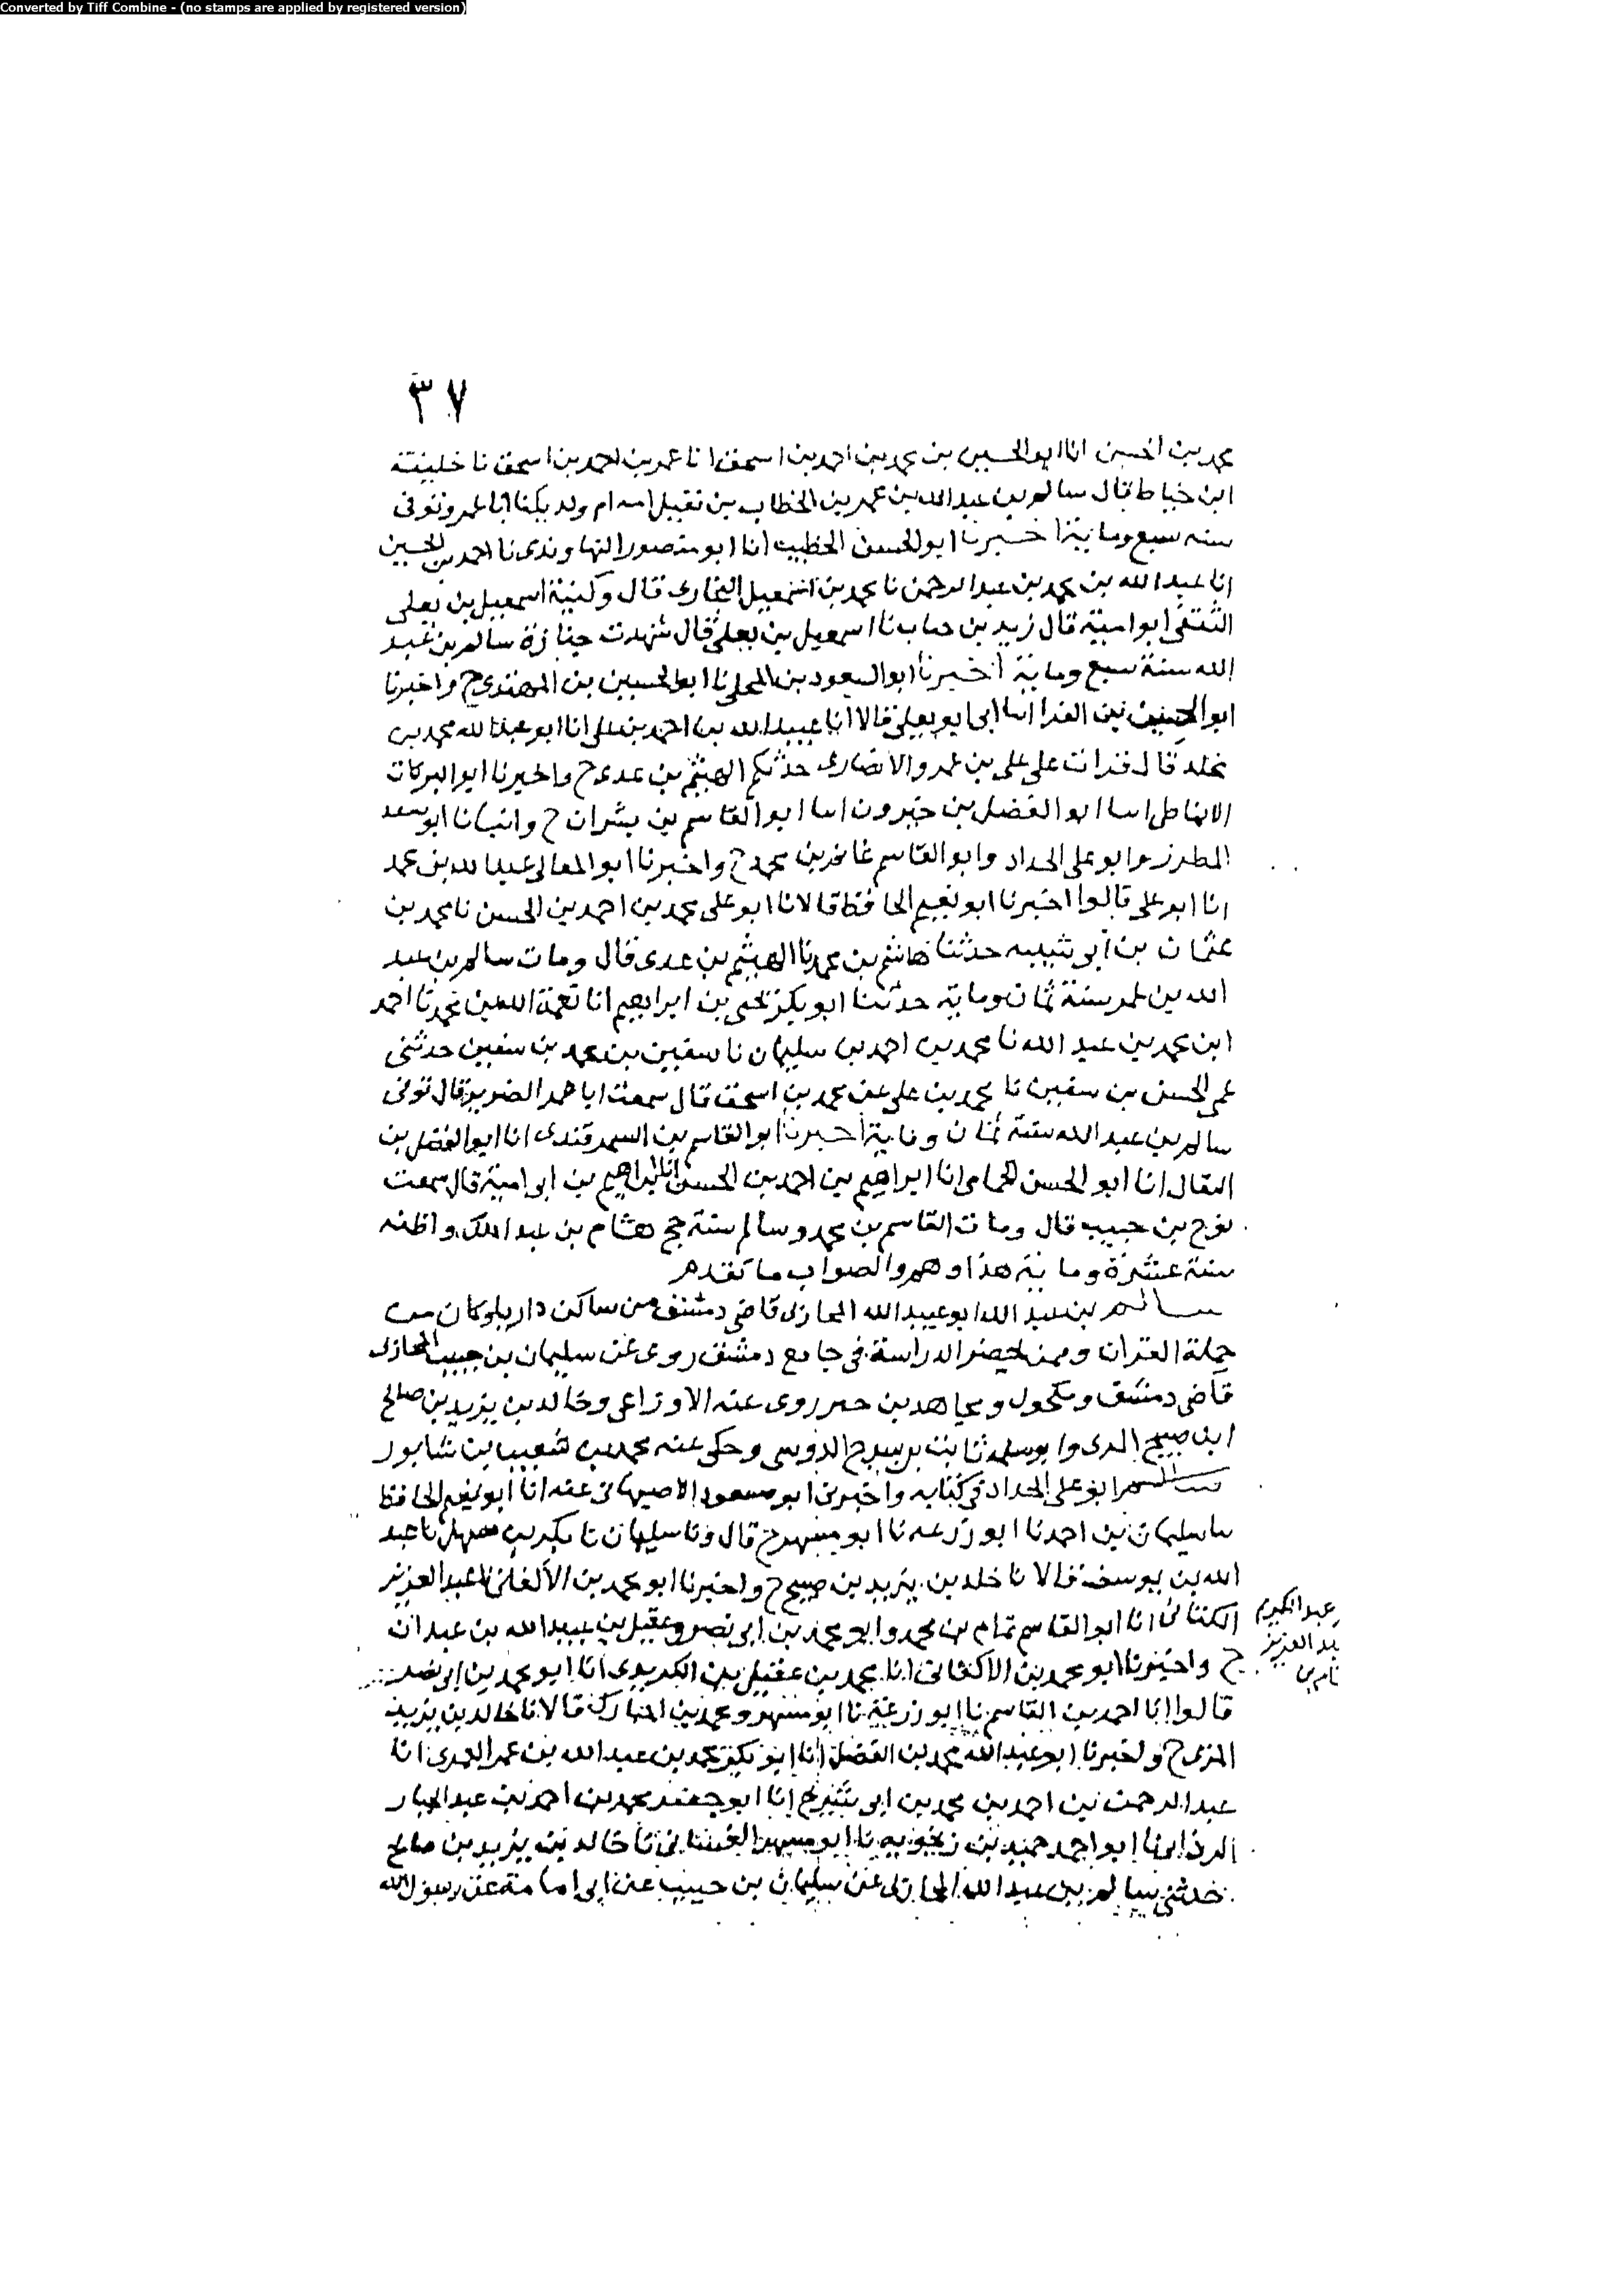 Converted by Tiff Combine - (no stamps are applied by registered version)
٣٧
محمد بن الحسين انا ابو الحسين بن محمد بن احمد بن اسحق انا عمر بن احمد بن اسحق نا خليفة
ابن خياط قال سالم بن عبد الله بن عمر بن الخطاب بن نفيل امه ام ولد يكنا ابا عمر وتوفى
سنه سبع وماية اخبرنا ابو الحسن الخطيب انا ابو منصور النهاوندى نا احمد بن الحسين
انا عبد الله بن محمد بن عبد الرحمن نا محمد بن اسمعيل البخارى قال وكنية اسمعيل بن يعلى
الثقفى ابو امية قال زيد بن حباب نا اسمعيل بن يعلى قال شهدت جنازة سالم بن عبد
الله سنة سبع وماية اخبرنا ابو السعود بن المحلى نا ابو الحسين بن المهتدى ح واخبرنا
ابو الحسين بن الفرا انا ابى ابو يعلى قالا انا عبيد الله بن احمد بن على انا ابو عبد الله محمد بن
مخلد قال قرات على على بن عمرو الانصارى حدثكم الهيثم بن عدى ح واخبرنا ابو البركات
الانماطى انا ابو الفضل بن خيرون انا ابو القاسم بن بشران ح وانبانا ابو سعد
المطرز وابو على الحداد وابو القاسم غانم بن محمد ح واخبرنا ابو المعالى عبد الله بن محمد
انا ابو على قالوا اخبرنا ابو نعيم الحافظ قالا نا ابو على محمد بن احمد بن الحسن نا محمد بن
عثمان بن ابى شيبه حدثنا هاشم بن محمد نا الهيثم بن عدى قال ومات سالم بن عبد
الله بن عمر سنة ثمان وماية حدثنا ابو بكر يحيى بن ابراهيم انا نعمة الله بن محمد نا احمد
ابن محمد بن عبد الله نا محمد بن احمد بن سليمان نا سفين بن محمد بن سفين حدثنى
عمى الحسن بن سفين نا محمد بن على عن محمد بن اسحق قال سمعت ابا عمر الضرير قال توفى
سالم بن عبد الله سنة ثمان وماية اخبرنا ابو القاسم بن السمرقندى انا ابو الفضل بن
البقال انا ابو الحسن الحمامى انا ابراهيم بن احمد بن الحسن انا ابراهيم بن ابى امية قال سمعت
نوح بن حبيب قال ومات القاسم بن محمد وسالم سنة حج هشام بن عبد الملك واظنه
سنة عشرة وماية هذا وهم والصواب ما تقدم
سالم بن عبد الله ابو عبيد الله المحاربى قاضى دمشق من ساكن داريا وكان من
حملة القران وممن يحضر الدراسة فى جامع دمشق روى عن سليمان بن حبيب المحاربى
قاضى دمشق ومكحول ومجاهد بن جبر روى عنه الاوزاعى وخالد بن يزيد بن صالح
ابن صبيح المرى وابو سلمه ثابت بن سرج الدوسى وحكى عنه محمد بن شعيب بن شابور
ابو على الحداد فى كتابه واخبرنى ابو مسعود الاصبهانى عنه انا ابو نعيم الحافظ
نا سليمان بن احمد نا ابو زرعه نا ابو مسهر ح قال ونا سليمان نا بكر بن سهل نا عبد
الله بن يوسف قالا نا خلد بن يزيد بن صبيح ح واخبرنا ابو محمد بن الاكفانى نا عبد العزيز
الكتانى انا ابو القاسم تمام بن محمد وابو محمد بن ابى نصر وعقيل بن عبيد الله بن عبدان
ح واخبرنا ابو محمد بن الاكفانى انا محمد بن عقيل بن الكريدى انا ابو محمد بن ابى نصر
قالوا انا احمد بن القاسم نا ابو زرعة نا ابو مسهر ومحمد بن المبارك قالا نا خالد بن يزيد
المرى ح واخبرنا ابو عبد الله محمد بن الفضل انا ابو بكر محمد بن عبد الله بن عمر العمرى انا
عبد الرحمن بن احمد بن محمد بن ابى شريح انا ابو جعفر محمد بن احمد بن عبد الجبار
نا ابو احمد حميد بن زنجويه نا ابو مسهر الغسانى نا خالد بن يزيد بن صالح
حدثنى سالم بن عبد الله المحاربى عن سليمان بن حبيب عن ابى امامة عن رسول الله
عبد الكريم
عبد العزيز